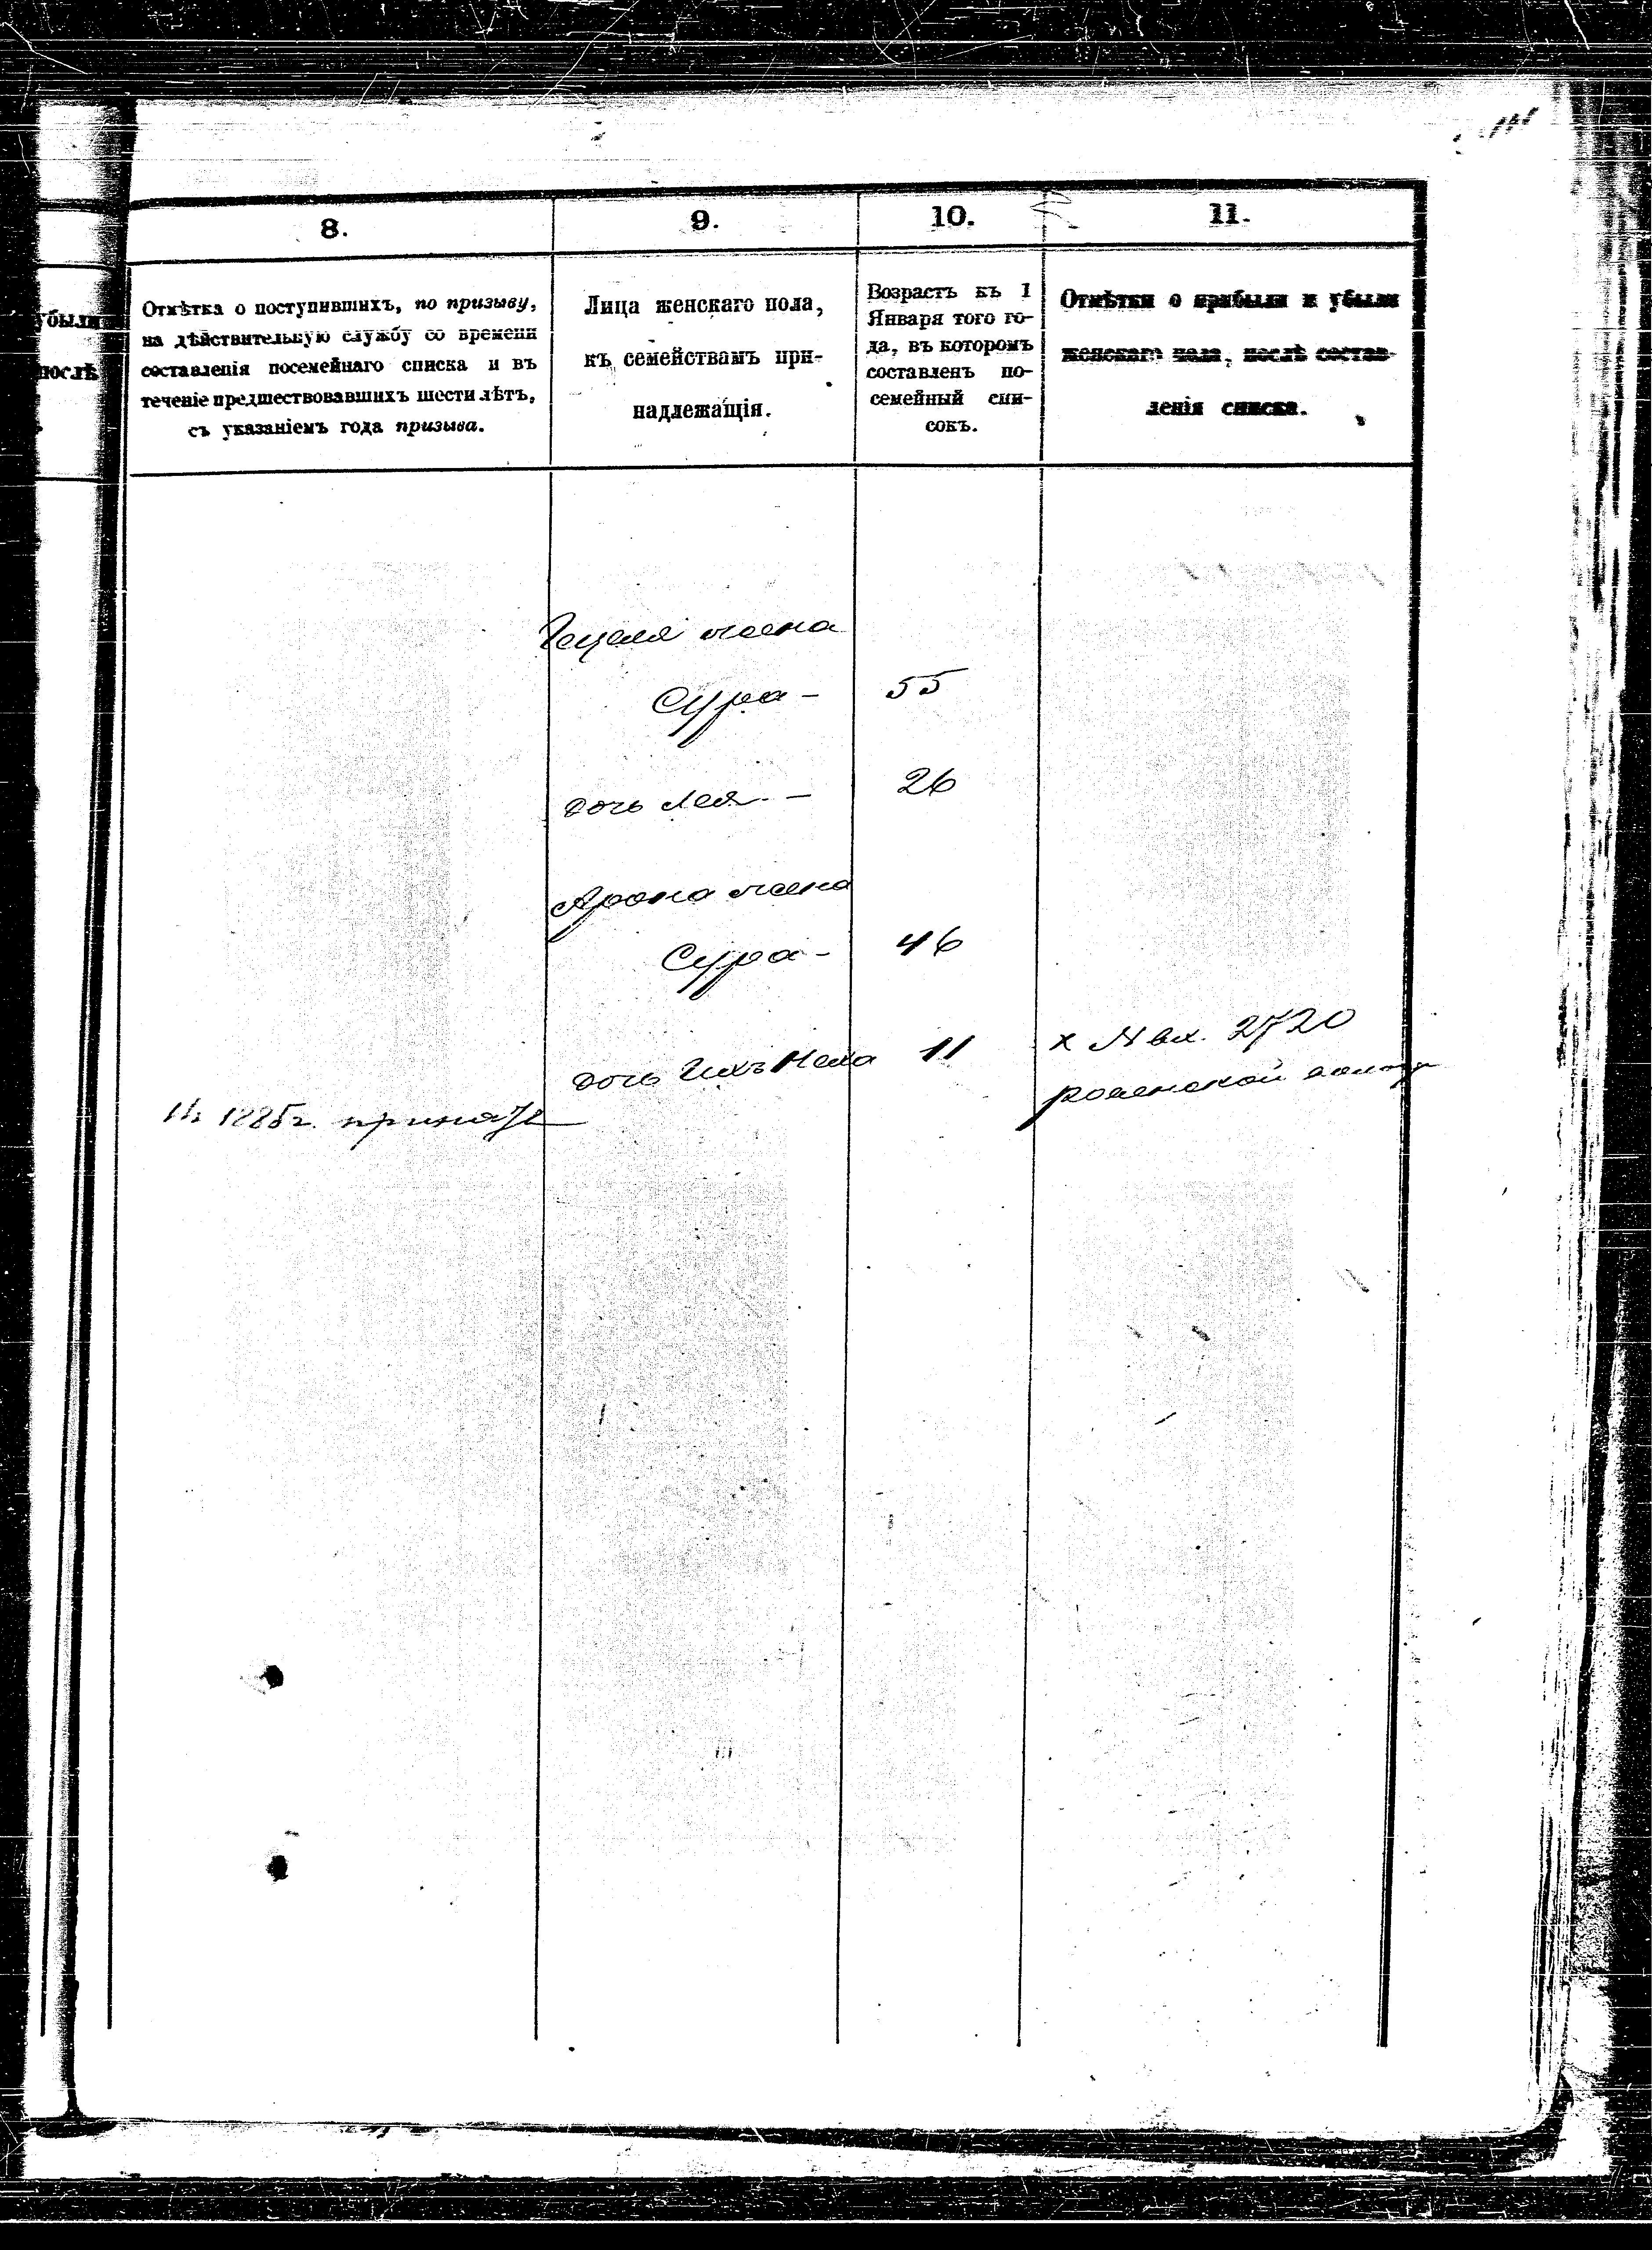 8.
9.
10.
11.
убыли
послѣ
Отмѣтка о поступившихъ, по призыву,
на дѣйствительную службу со времени
составленія посемейнаго списка и въ
теченіе предшествовавшихъ шести лѣтъ,
съ указаніемъ года призыва.
Лица женскаго пола,
къ семействамъ при-
надлежащія.
Возрастъ къ 1
Января того го-
да, въ которомъ
составленъ по-
семейный спи-
сокъ.
Отмѣтки о прибыли и убыли
женскаго пола, послѣ состав-
ленія списка.
Гецеля жена
Сура - 55
дочь Лея - 26
Арона жена
Сура - 46
дочь ихъ Неха 11
х N вх. 2720
1885 г. принятъ